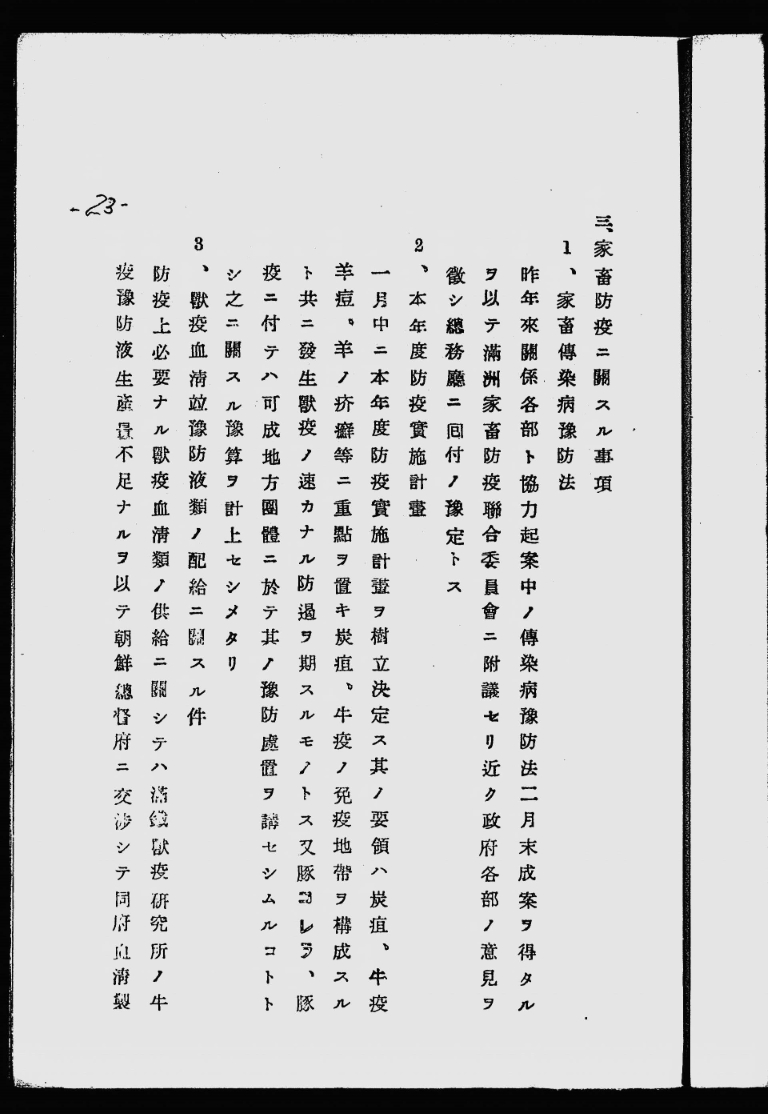 三、家畜防疫ニ關スル事項
1、家畜傳染病豫防法
昨年來關係各部ト協力起案中ノ傳染病豫防法二月末成案ヲ得タル
ヲ以テ滿洲家畜防疫聯合委員會ニ附議セリ近ク政府各部ノ意見ヲ
徵シ總務廳ニ囘付ノ豫定トス
2、本年度防疫實施計畫
一月中ニ本年度防疫實施計畫ヲ樹立決定ス其ノ要領ハ炭疽、牛疫
羊痘。羊ノ疥癬等ニ重點ヲ置キ炭疽。牛疫ノ免疫地帶ヲ構成スル
ト共ニ發生獸疫ノ速カナル防遏ヲ期スルモノトス又豚コレラ、豚
疫ニ付テハ可成地方團體ニ於テ其ノ豫防處置ヲ講セシムルコトト
シ之ニ關スル豫算ヲ計上セシメタリ
3、獸疫血淸竝豫防液類ノ配給ニ關スル件
防疫上必要ナル獸疫血淸類ノ供給ニ關シテハ滿鐵獸疫硏究所ノ牛
疫豫防液生產量不足ナルヲ以テ朝鮮總督府ニ交涉シテ同府血淸製
-23-